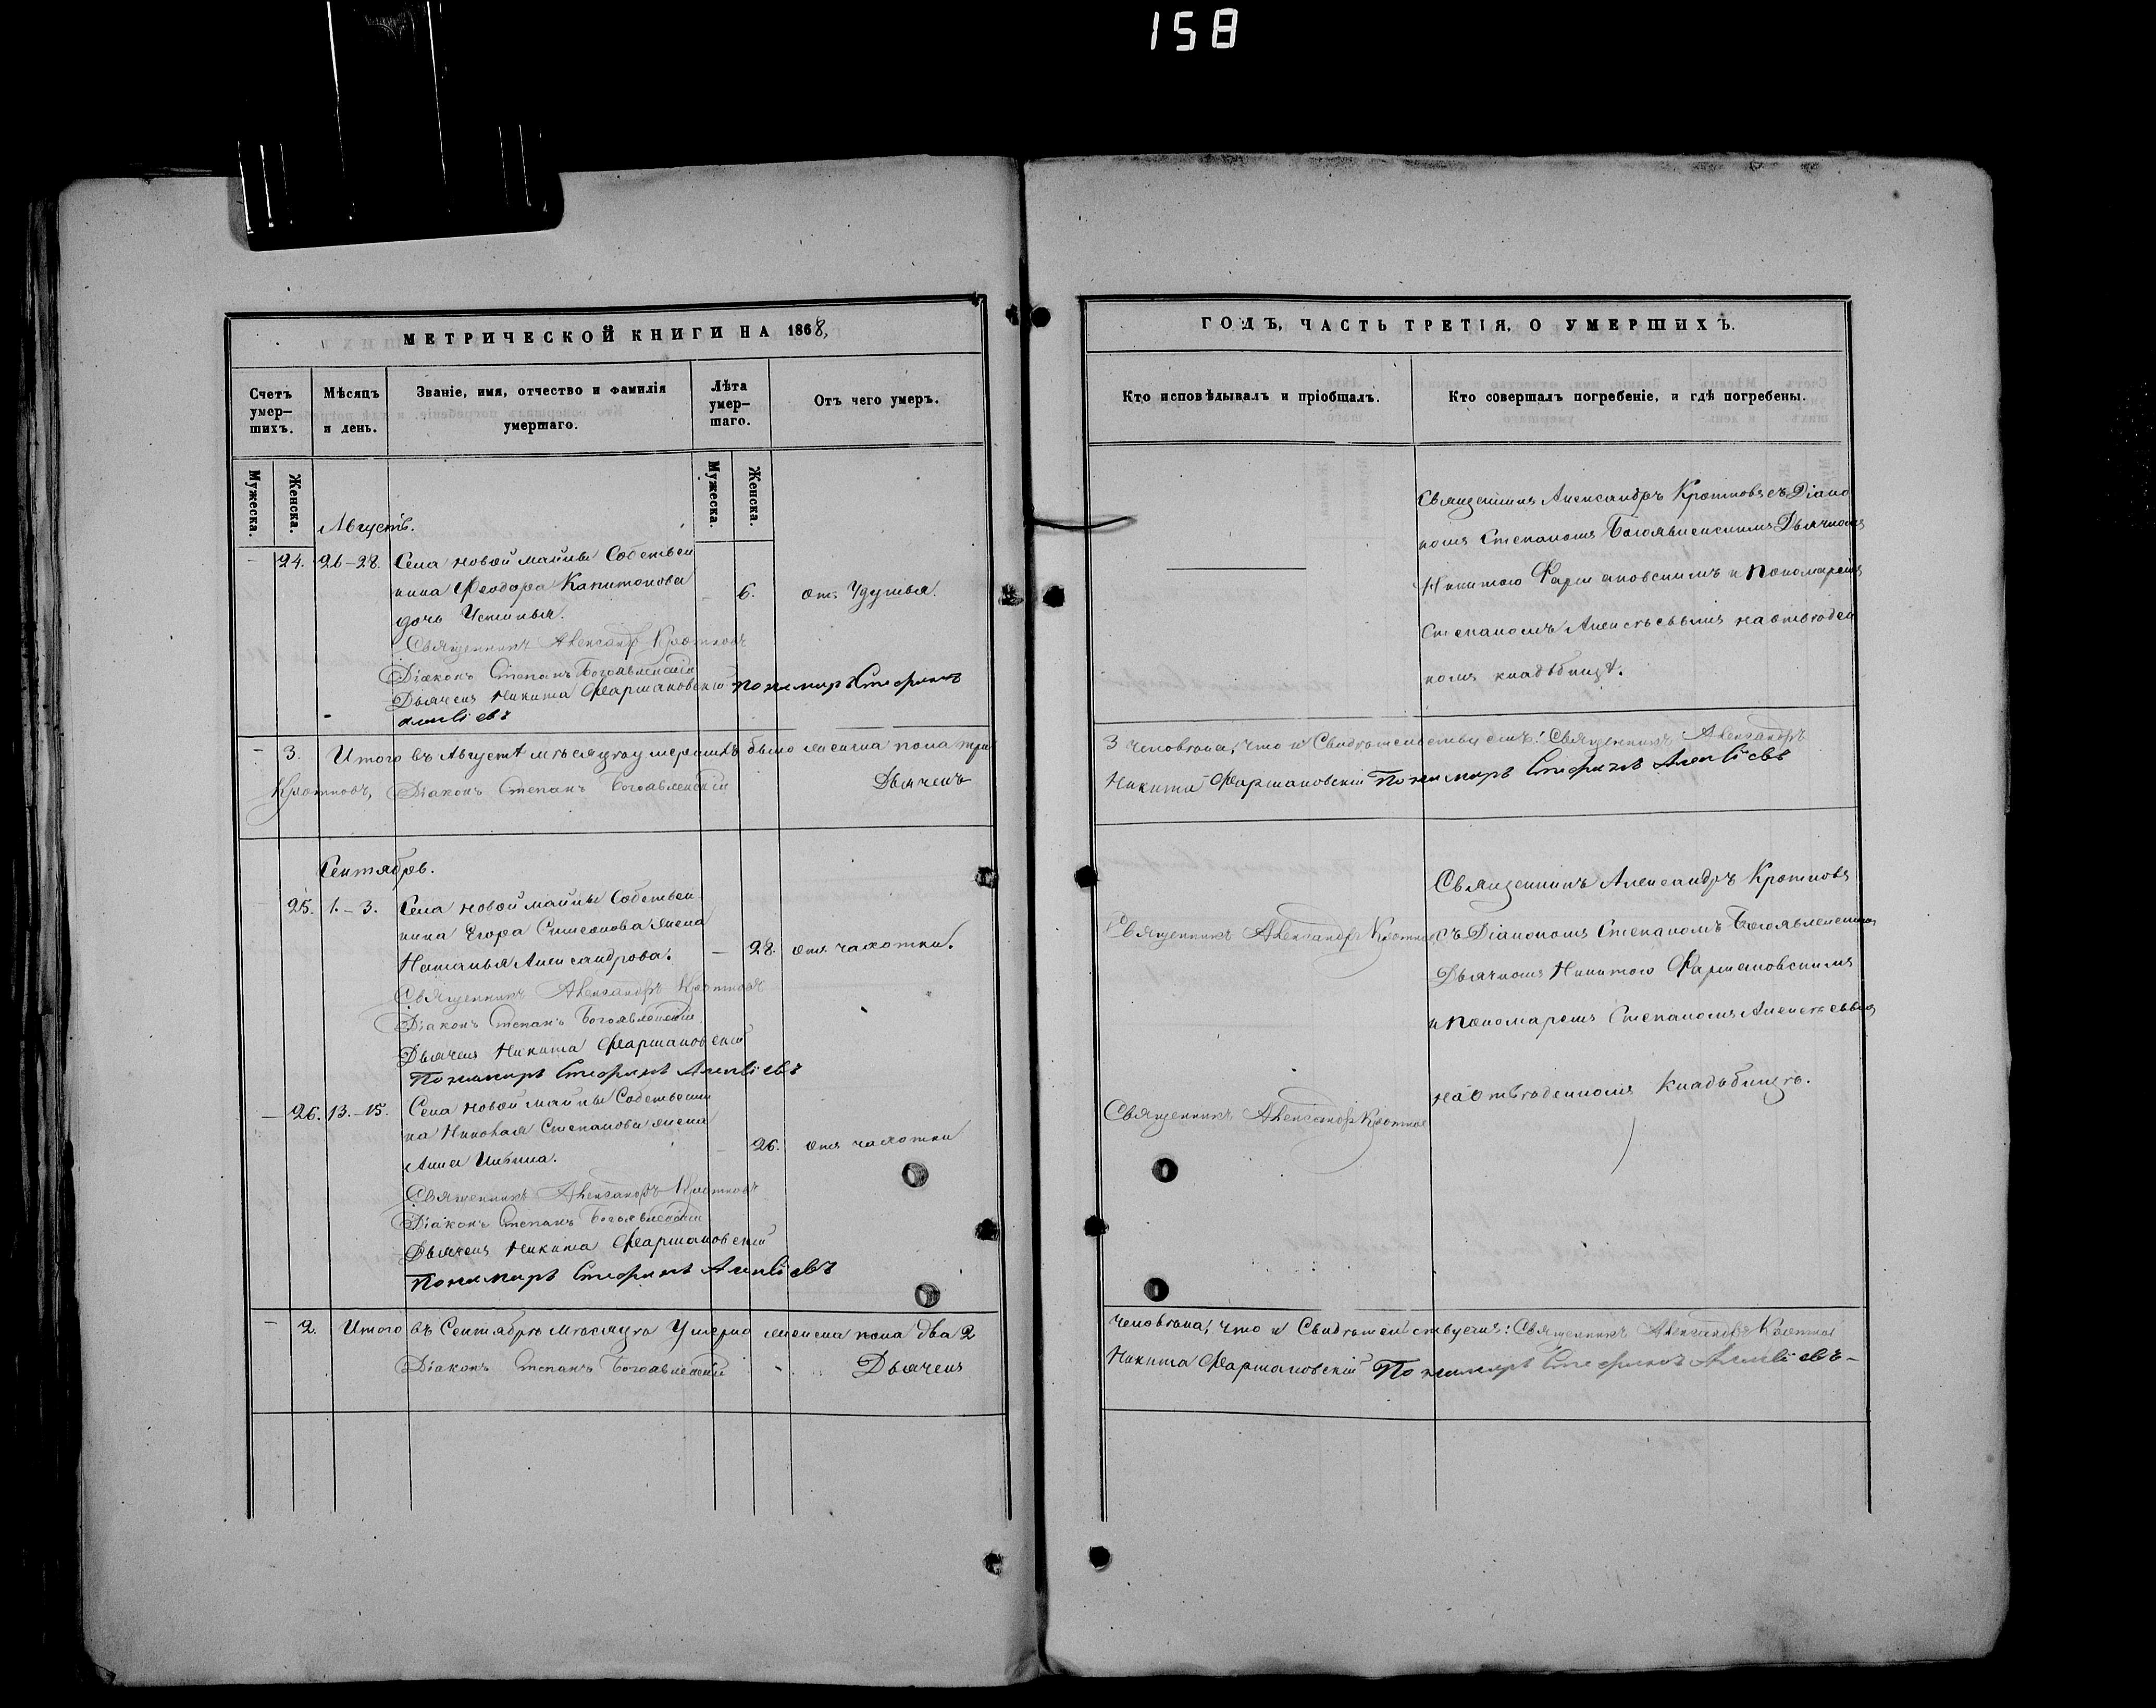 158
МЕТРИЧЕСКОЙ КНИГИ НА 1868,
Счетъ умер-шихъ.
Мѣсяцъ и день.
Званіе, имя, отчество и фамилія умершаго.
Лѣта умер-шаго.
Отъ чего умеръ.
Мужеска.
Женска.
Мужеска.
Женска.
Августъ.
- 24. 26-28. Села новой майны Собствен
ника Феодора Капитонова
дочь Устинья.
- 6. отъ Удушья.
Священникъ Александръ Кротковъ
Діаконъ Степанъ Богоявленскій
Дьячекъ Никита Фармаковскій Пономарь Стефанъ
Алексіевъ
- 3. Итого въ Августѣ мѣсяцѣ умершихъ было женска пола три
Кротковъ, Діаконъ Степанъ Богоявленскій Дьячекъ
Сентябрь.
25. 1.-3. Села новой майны Собствен
ника Егора Симеонова жена
Наталья Александрова.
- 28. отъ чахотки.
Священникъ Александръ Кротковъ
Діаконъ Степанъ Богоявленскій
Дьячекъ Никита Фармаковскій
Пономарь Стефанъ Алексіевъ
- 26. 13.-15. Села новой майны Собственни
ка Николая Степанова жена
Анна Ильина.
- 26. отъ чахотки
Священникъ Александръ Кротковъ
Діаконъ Степанъ Богоявленскій
Дьячекъ Никита Фармаковскій
Пономарь Стефанъ Алексіевъ
- 2. Итого въ Сентябрѣ мѣсяцѣ Умерло женска пола два 2
Діаконъ Степанъ Богоявленскій Дьячекъ
ГОДЪ, ЧАСТЬ ТРЕТІЯ, О УМЕРШИХЪ.
Кто исповѣдывалъ и пріобщалъ.
Кто совершалъ погребеніе, и гдѣ погребены.
Священникъ Александръ Кротковъ съ Діако
номъ Степаномъ Богоявленскимъ Дьячкомъ
Никитою Фармаковскимъ и Пономаремъ
Степаномъ Алексѣевымъ на отведен
номъ кладбищѣ.
3 человѣка, что и Свидѣтельствуемъ: Священникъ Александръ
Никита Фармаковскій Пономарь Стефанъ Алексіевъ
Священникъ Александръ Кротковъ
Священникъ Александръ Кротковъ
съ Діакономъ Степаномъ Богоявленскимъ
Дьячкомъ Никитою Фармаковскимъ
и Пономаремъ Степаномъ Алексѣевымъ
на отведенномъ Кладбищѣ.
Священникъ Александръ Кротковъ
человѣка, что и Свидѣтельствуемъ: Священникъ Александръ Кротковъ
Никита Фармаковскій Пономарь Стефанъ Алексіевъ-